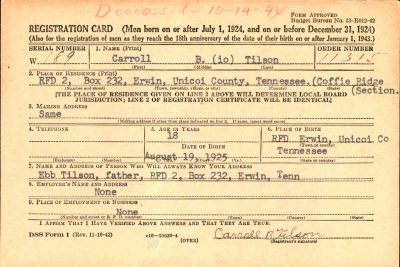 Deceased - 10-14-44
Form Approved
Budget Bureau No. 33-R012-42
REGISTRATION CARD (Men born on or after July 1, 1924, and on or before December 31, 1924)
(Also for the registration of men as they reach the 18th anniversary of the date of their birth on or after January 1, 1943.)
SERIAL NUMBER
1. NAME (Print)
ORDER NUMBER
W 89
Carroll B. (io) Tilson
11315
(First) (Middle) (Last)
2. PLACE OF RESIDENCE (Print)
RFD 2, Box 232, Erwin, Unicoi County, Tennessee. (Coffie Ridge
(Section.
[THE PLACE OF RESIDENCE GIVEN ON LINE 2 ABOVE WILL DETERMINE LOCAL BOARD
JURISDICTION; LINE 2 OF REGISTRATION CERTIFICATE WILL BE IDENTICAL]
3. MAILING ADDRESS
Same
[Mailing address if other than place indicated on line 2. If same, insert word same]
4. TELEPHONE
5. AGE IN YEARS
6. PLACE OF BIRTH
18
RFD Erwin, Unicoi Co
DATE OF BIRTH
August 19, 1925
Tennessee
(Exchange) (Number)
(Mo.) (Day) (Yr.)
(State or country)
7. NAME AND ADDRESS OF PERSON WHO WILL ALWAYS KNOW YOUR ADDRESS
Ebb Tilson, father, RFD 2, Box 232, Erwin, Tenn
8. EMPLOYER'S NAME AND ADDRESS
None
9. PLACE OF EMPLOYMENT OR BUSINESS
None
(Number and street or R. F. D. number) (Town) (County) (State)
I AFFIRM THAT I HAVE VERIFIED ABOVE ANSWERS AND THAT THEY ARE TRUE.
DSS Form 1 (Rev. 11-16-42)
(OVER)
Carroll B Tilson
(Registrant's signature)